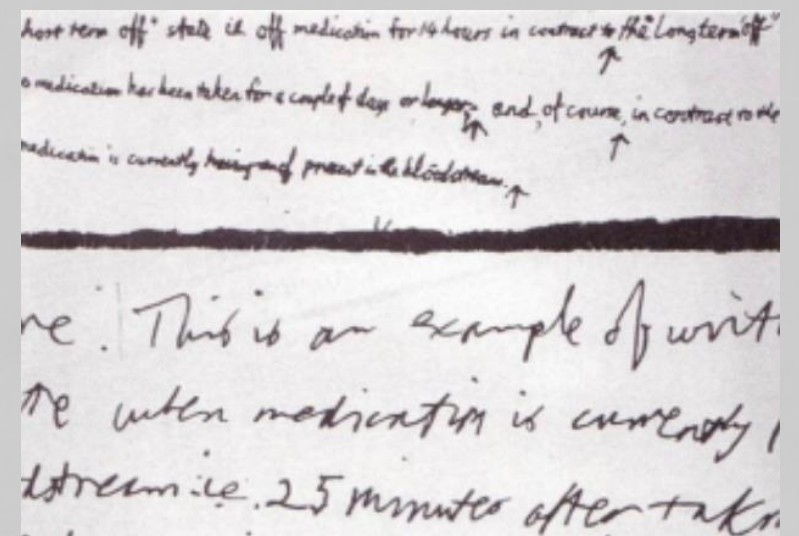 hort term off" state is off medication for 14 hours in contrast to the "Long term "off"
o medication has been taken for a couple of days or longer, and, of course, in contrast to the
medication is currently present in the bloodstream.
re. This is an example of writ
te when medication is currently
dstream i.e. 25 minutes after takn